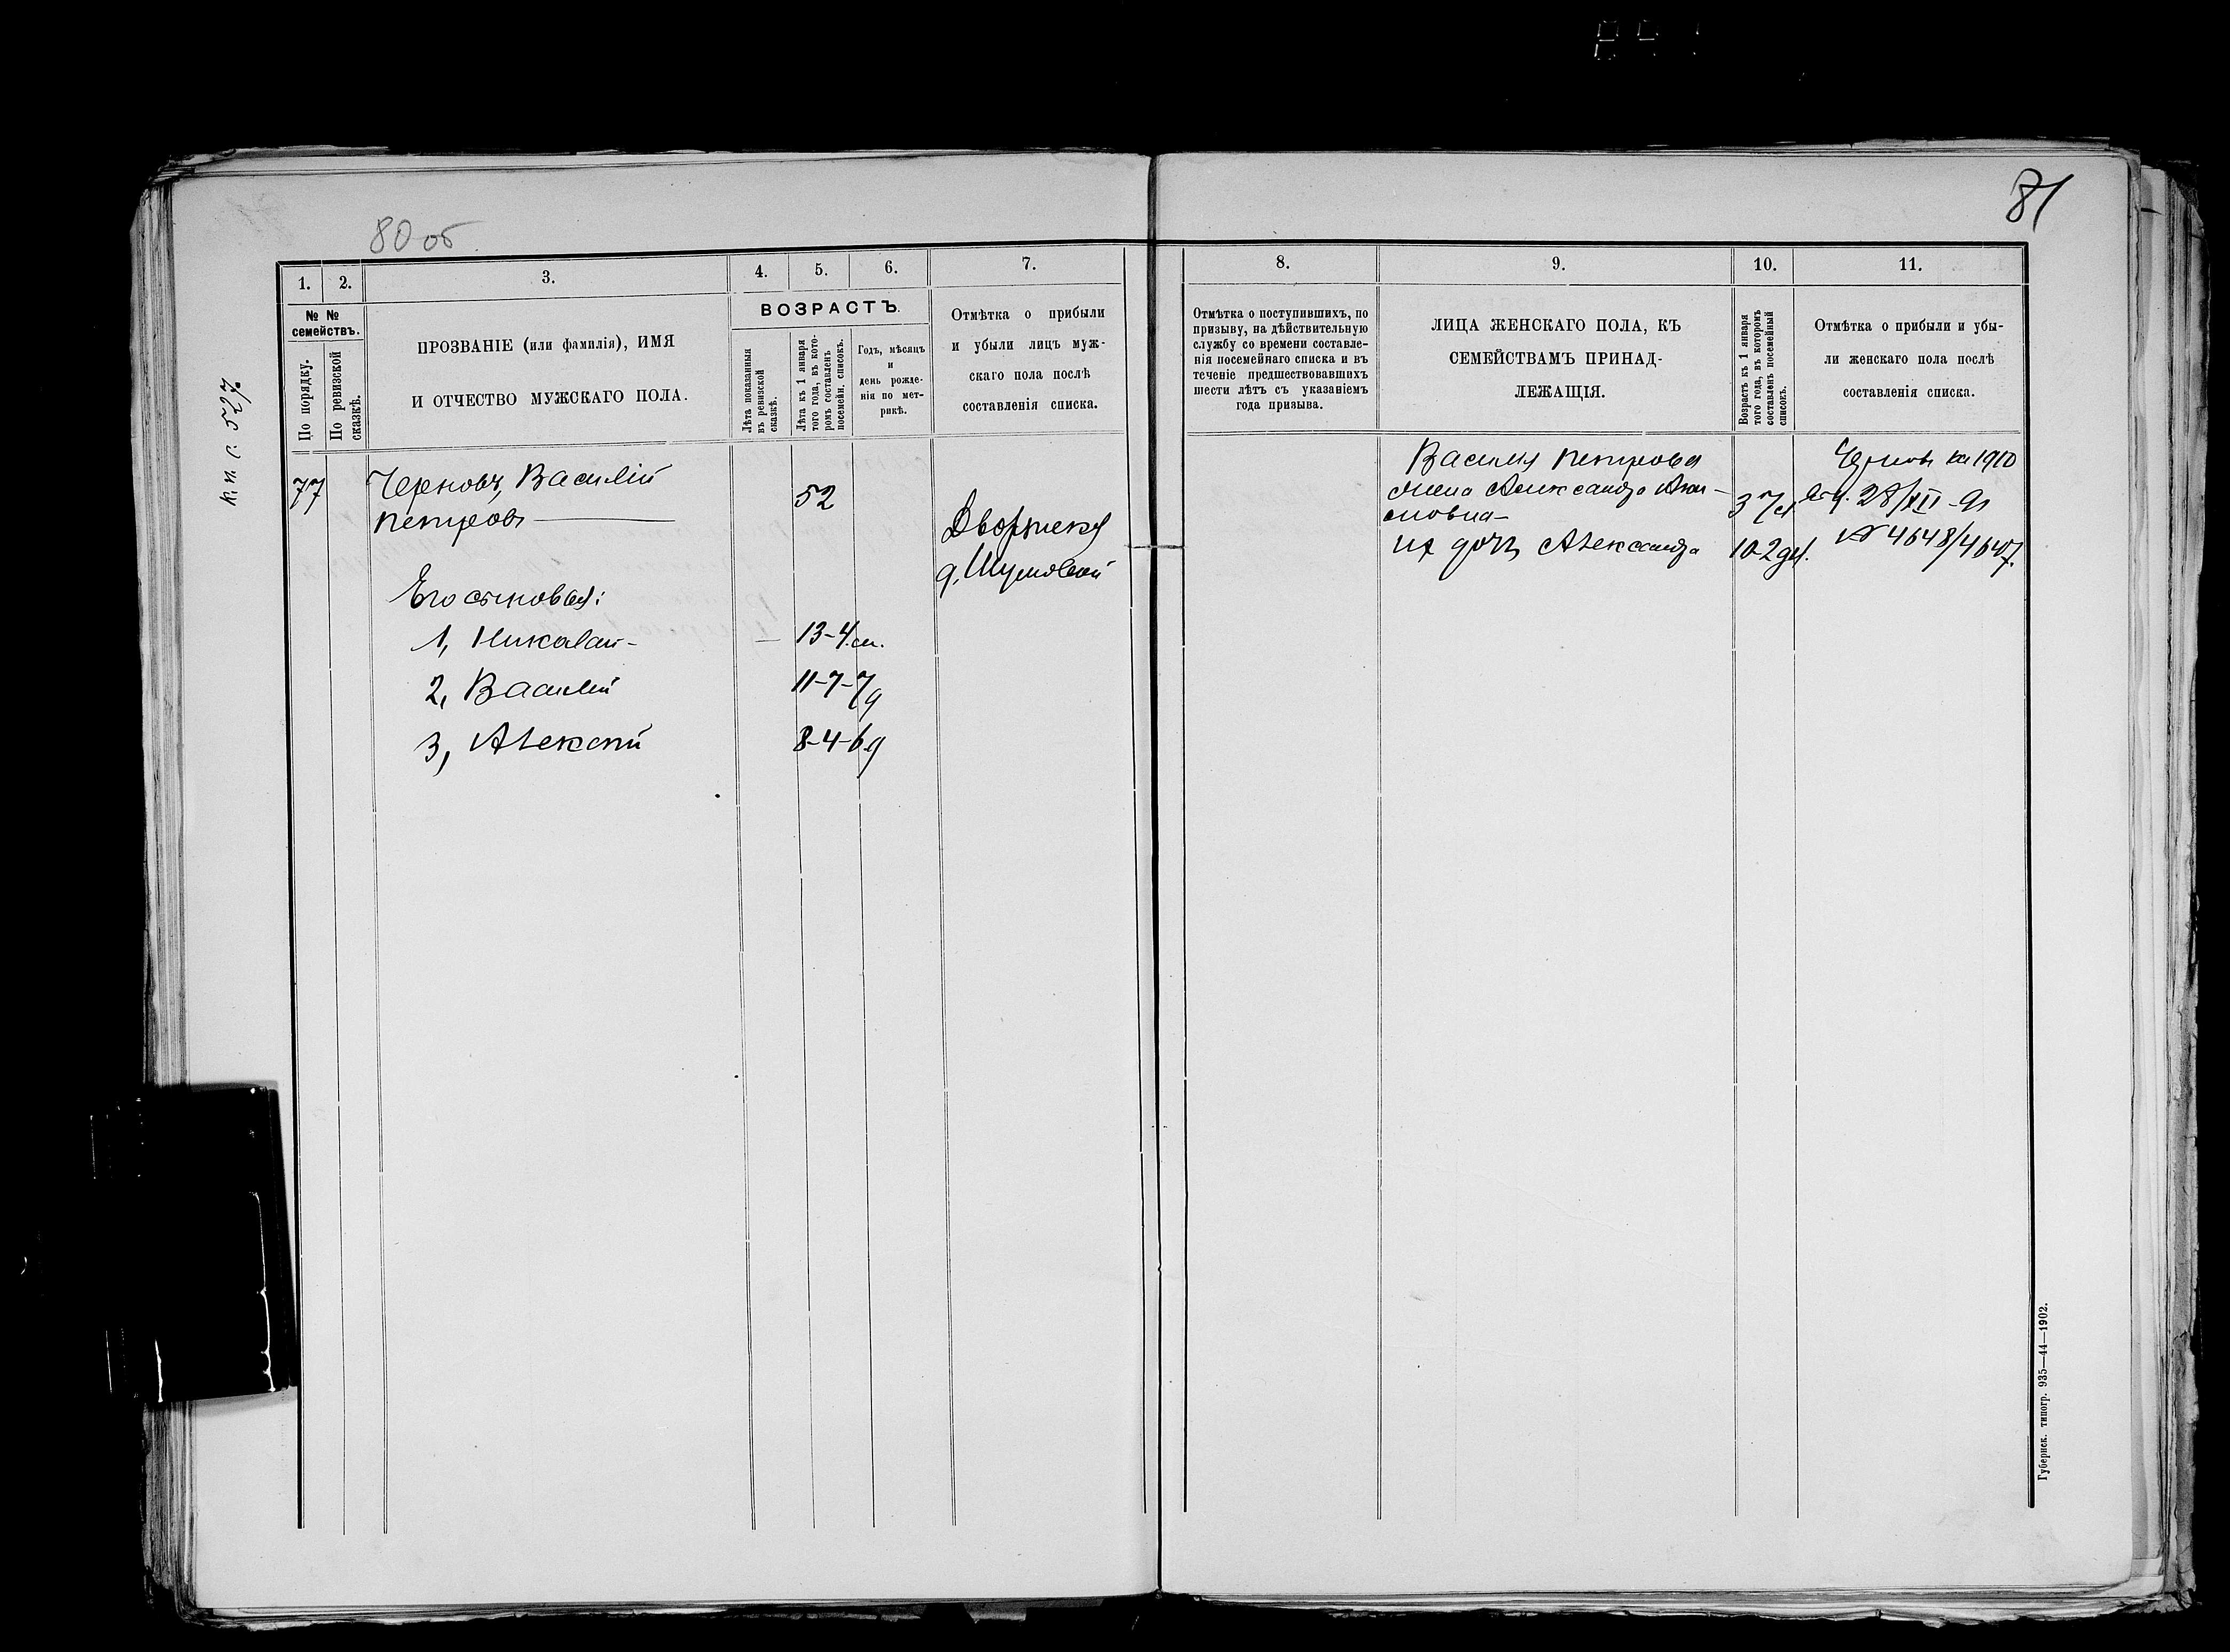 80 об.
1.
2.
3.
4.
5.
6.
7.
№ №
семействъ.
По порядку.
По ревизской
сказкѣ.
ПРОЗВАНІЕ (или фамилія), ИМЯ
И ОТЧЕСТВО МУЖСКАГО ПОЛА.
ВОЗРАСТЪ.
Лѣта показанныя
въ ревизской
сказкѣ.
Лѣта къ 1 января
того года, въ кото-
ромъ составленъ
посемейн. списокъ.
Годъ, мѣсяцъ
и
день рожде-
нія по мет-
рикѣ.
Отмѣтка о прибыли
и убыли лицъ муж-
скаго пола послѣ
составленія списка.
к. п. с. 527
77
Черновъ, Василій
Петровъ
52
д. Шумовской
Его сыновья:
1, Николай -
13-4 м.
2, Василій
11-7-7 д
3, Алексѣй
8-4-6 д
81
8.
9.
10.
11.
Отмѣтка о поступившихъ, по
призыву, на дѣйствительную
службу со времени составле-
нія посемейнаго списка и въ
теченіе предшествовавшихъ
шести лѣтъ съ указаніемъ
года призыва.
ЛИЦА ЖЕНСКАГО ПОЛА, КЪ
СЕМЕЙСТВАМЪ ПРИНАД-
ЛЕЖАЩІЯ.
Возрастъ къ 1 января
того года, въ которомъ
составленъ посемейный
списокъ.
Отмѣтка о прибыли и убы-
ли женскаго пола послѣ
составленія списка.
Василія Петрова
жена Александра
37
ихъ дочь Александра
10-2
1910
28/XII
№ 4648/4647.
Губернск. типогр. 935—44—1902.